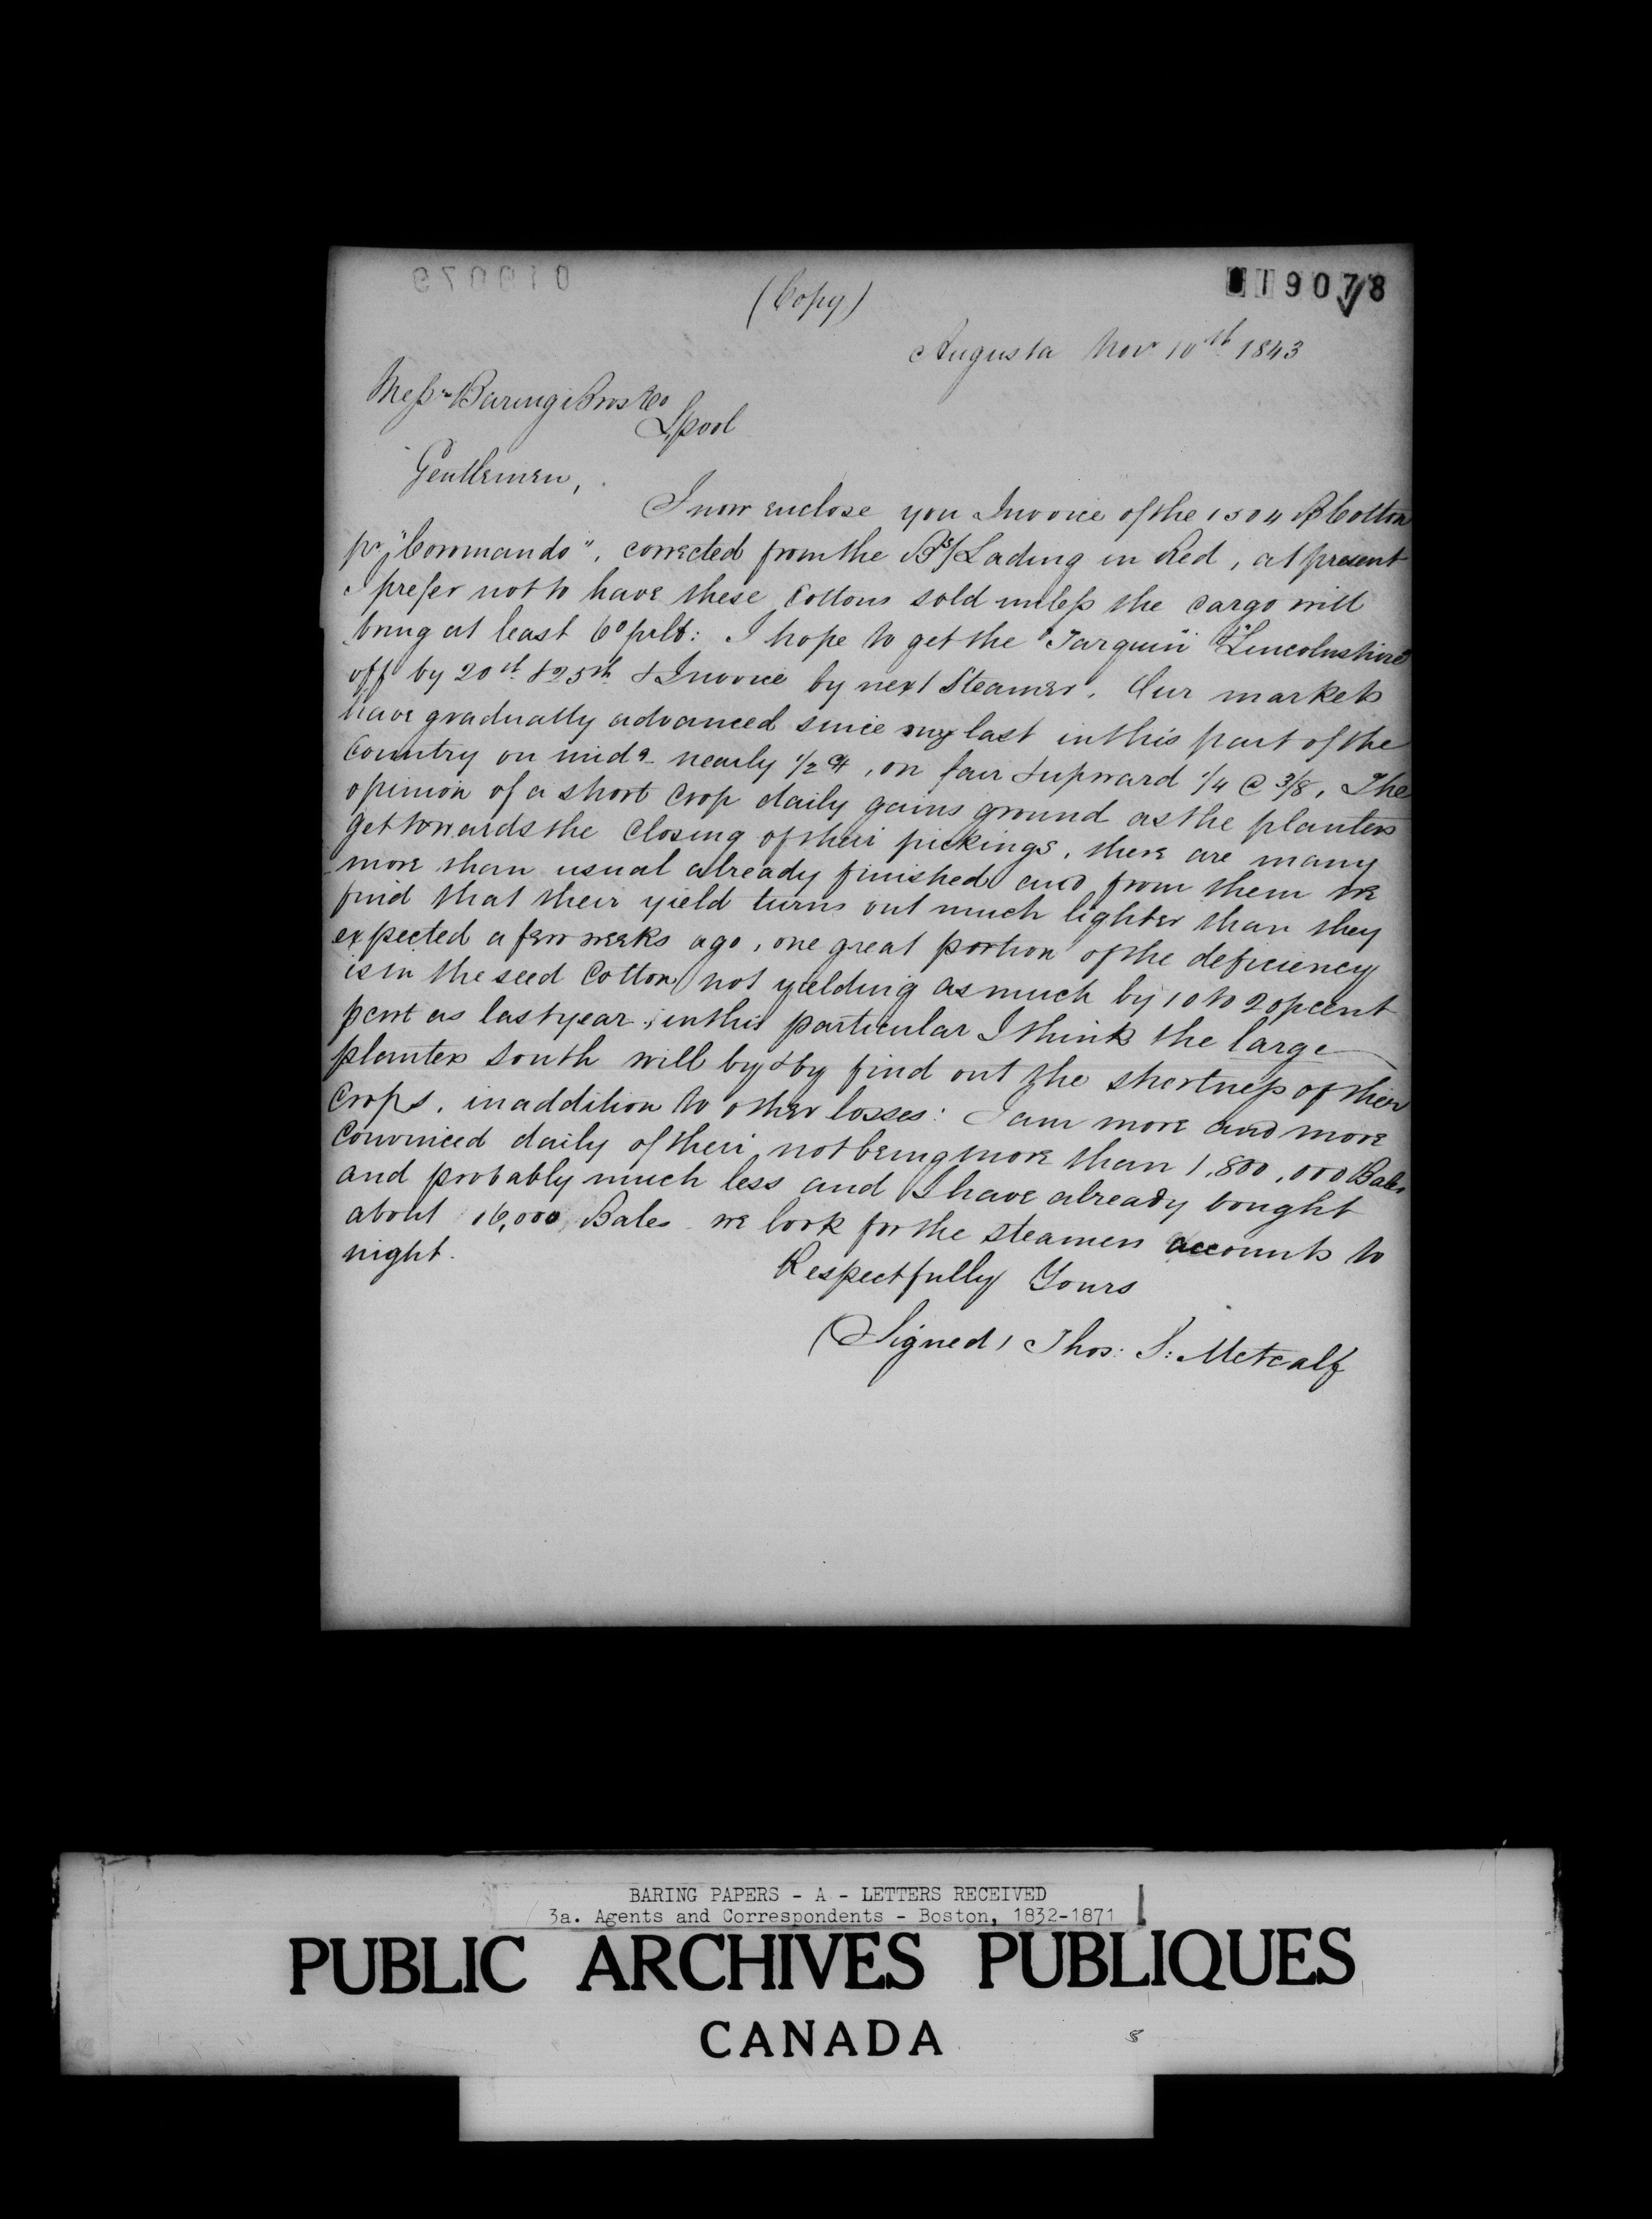 019079
(Copy)
019078
Augusta Nov 10th 1843
Messrs Baring Bros & Co
Lpool
Gentlemen,
I now enclose you Invoice of the 1504 B Cotton
pr "Coromando", corrected from the Bs/Lading in Red, at present
I prefer not to have these Cottons sold unless the cargo will
bring at least 6d pr lb: I hope to get the "Tarquin" & "Lincolnshire"
off by 20th & 25th & Invoice by next Steamer. Our markets
have gradually advanced since my last in this part of the
Country on midg nearly 1/2 ct, on fair & upward 1/4 @ 3/8. The
opinion of a short Crop daily gains ground as the planters
get towards the Closing of their pickings, there are many
more than usual already finished and from them we
find that their yield turns out much lighter than they
expected a few weeks ago, one great portion of the deficiency
is in the seed Cotton not yielding as much by 10 to 20 pcent
pcwt as last year; in this particular I think the large
planters South will by & by find out the shortness of their
Crops, in addition to other losses: I am more and more
Convinced daily of their not being more than 1,800,000 Bales
and probably much less and I have already bought
about 16,000 Bales we look for the steamers accounts to
night.
Respectfully Yours
(Signed) Thos: S: Metcalf
BARING PAPERS - A - LETTERS RECEIVED
3a. Agents and Correspondents - Boston, 1832-1871
PUBLIC ARCHIVES PUBLIQUES
CANADA
8